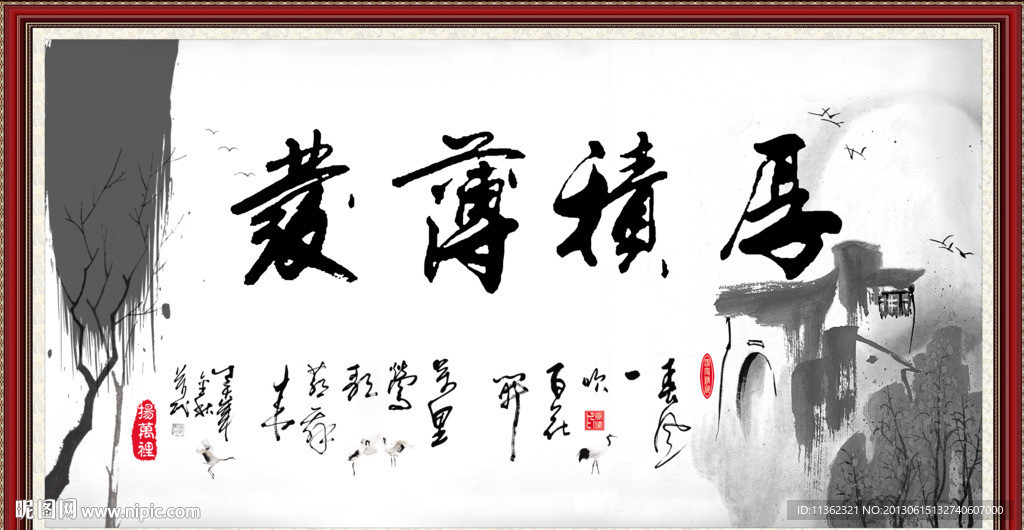 厚積薄發
春風
一
吹
百花
開
萬里
鶯
歌
燕舞
春
揚萬裡
昵图网 www.nipic.com
ID:11362321 NO:20130615132740607000